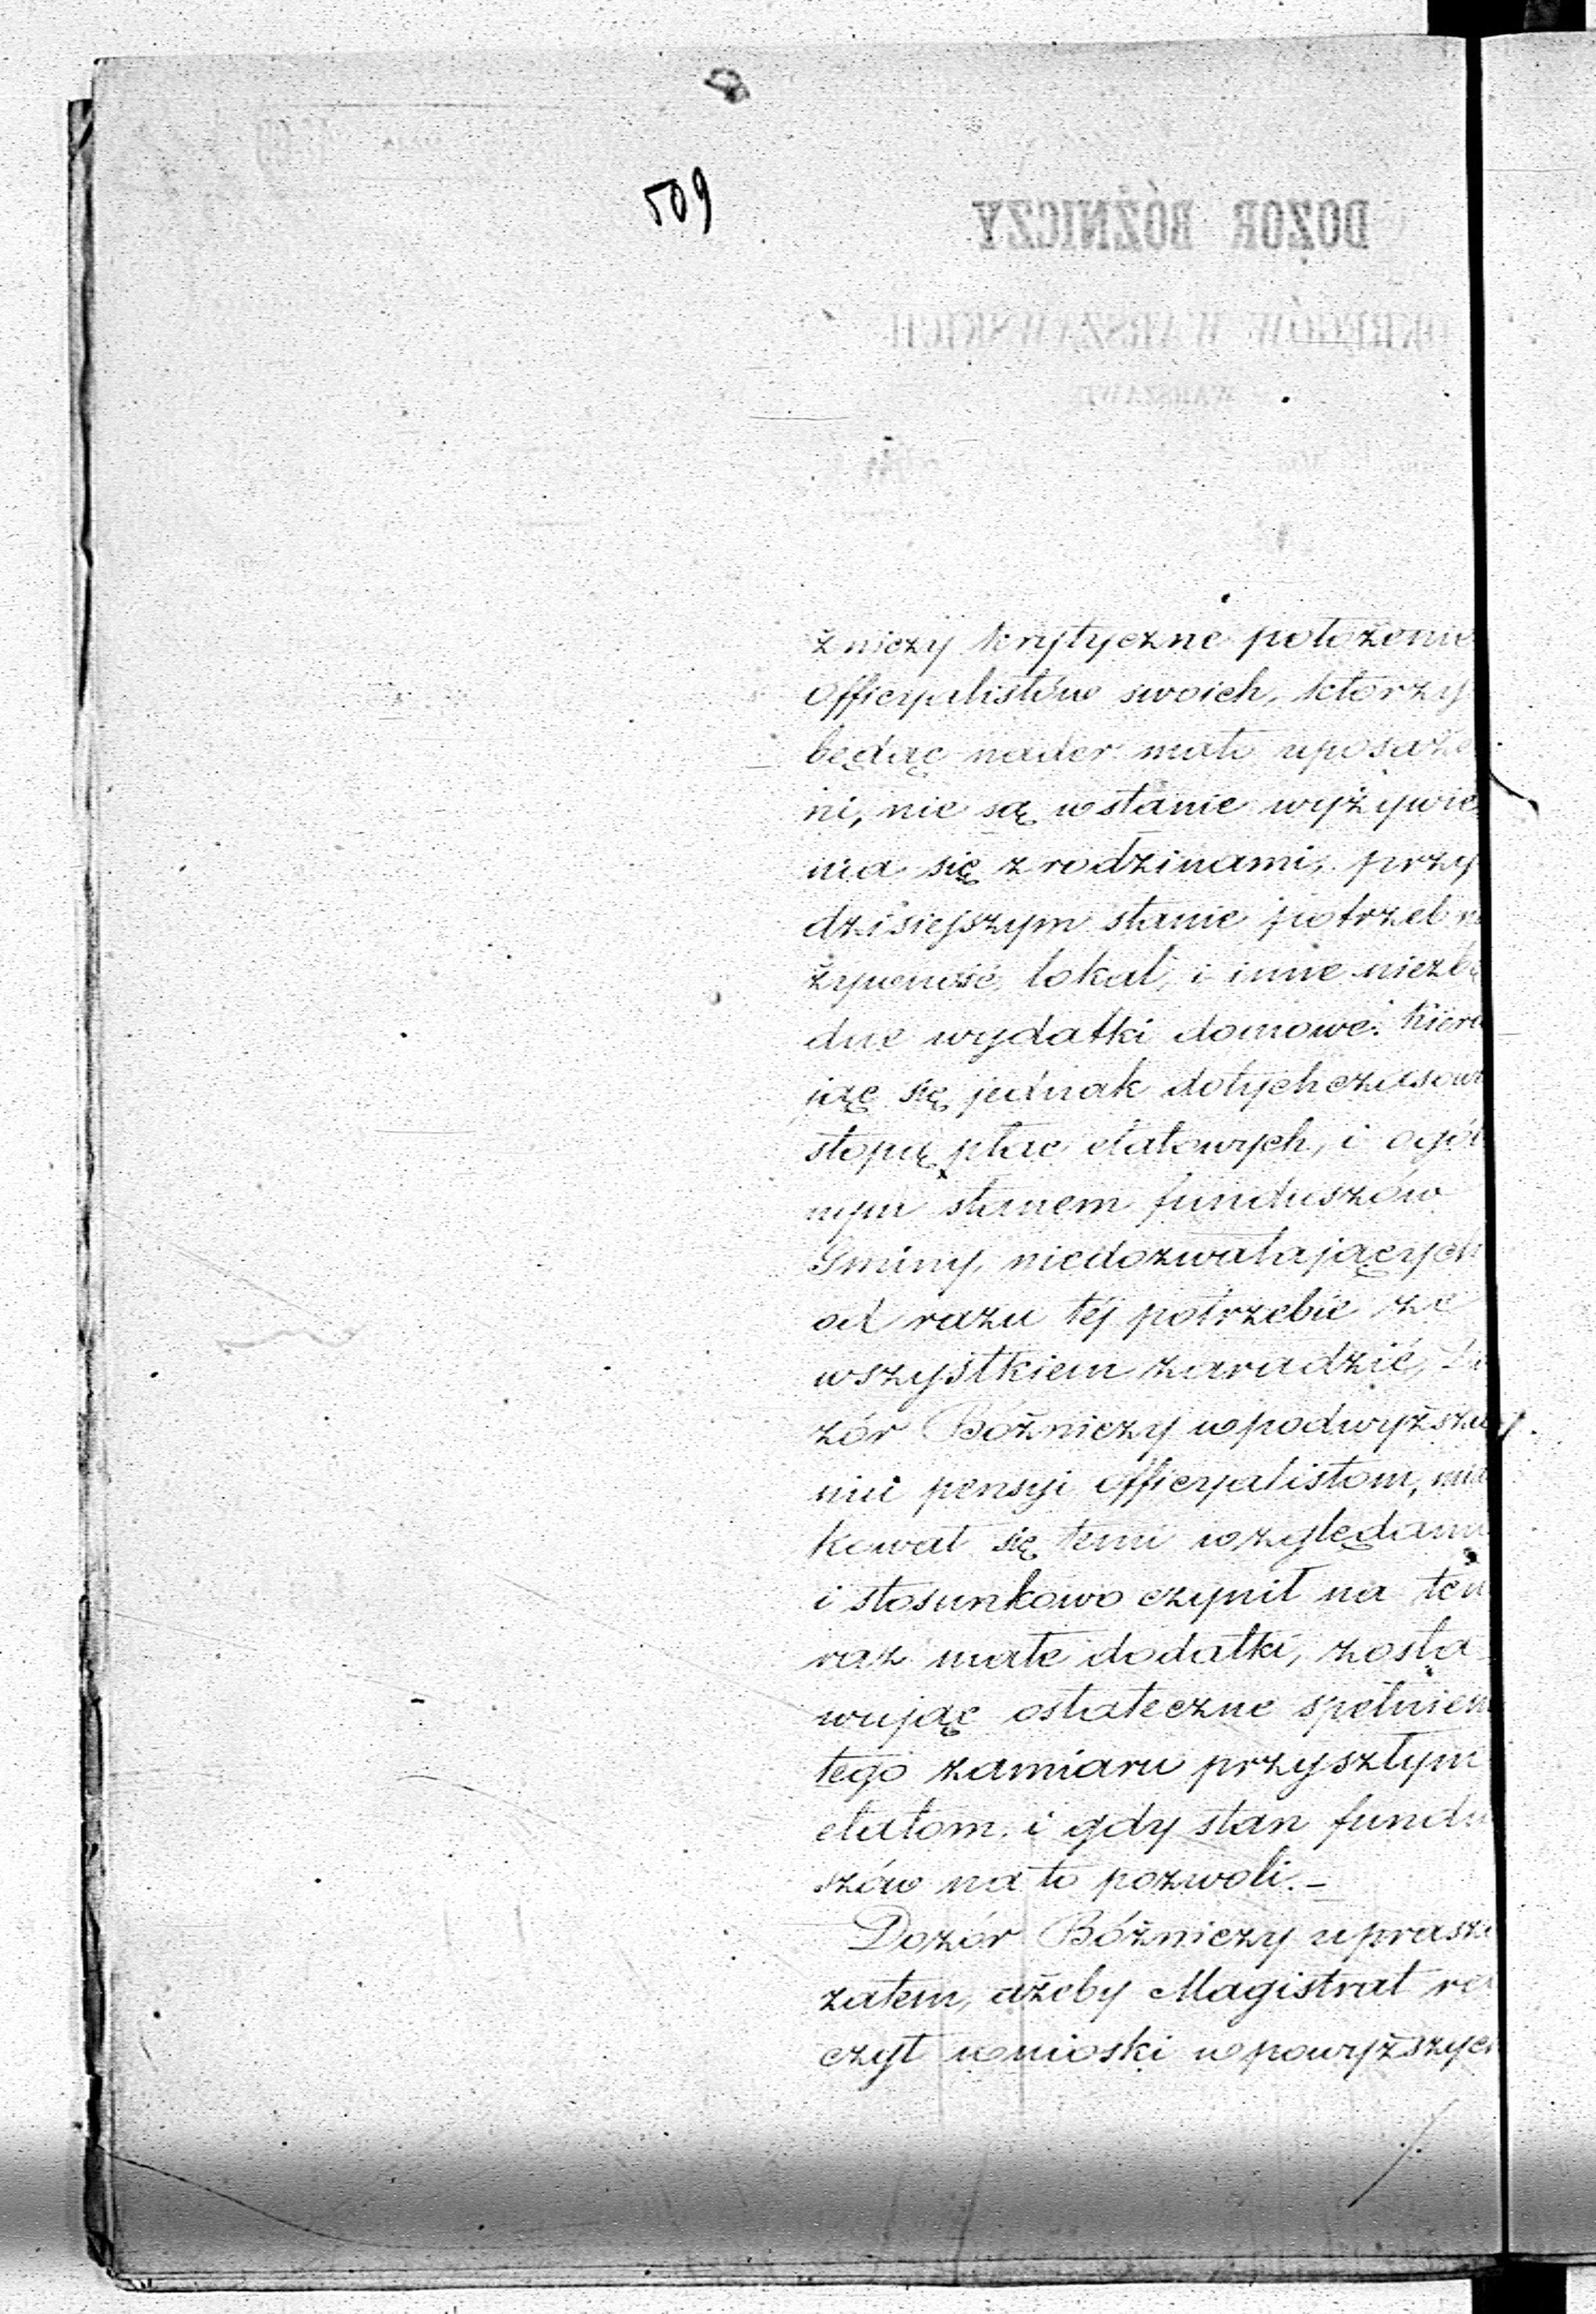 509
DOZOR BÓŻNICZY
OKRĘGÓW WARSZAWSKICH
żniczy krytyczne położenie
Officyalistów swoich, którzy
będąc nader mało uposaże
ni, nie są wstanie wyżywie
nia się z rodzinami, przy
dzisiejszym stanie potrzeb n
żywność, lokal, i inne niezbę
dne wydatki domowe. Kieru
jąc się jednak dotychczasow
stopą płac etatowych, i ogól
nym stanem funduszów
Gminy, niedozwalających
od razu téj potrzebie ze
wszystkiem zaradzić, Do
zór Bóżniczy wpodwyższa
niu pensyi Officyalistom, mia
kował się temi względami
i stosunkowo czynił na ten
raz małe dodatki, zosta
wując ostateczne spełnien
tego zamiaru przyszłym
etatom, i gdy stan fundu
szów na to pozwoli.–
Dozór Bóżniczy uprasza
zatem, ażeby Magistrat ra
czył wnioski wpowyższych